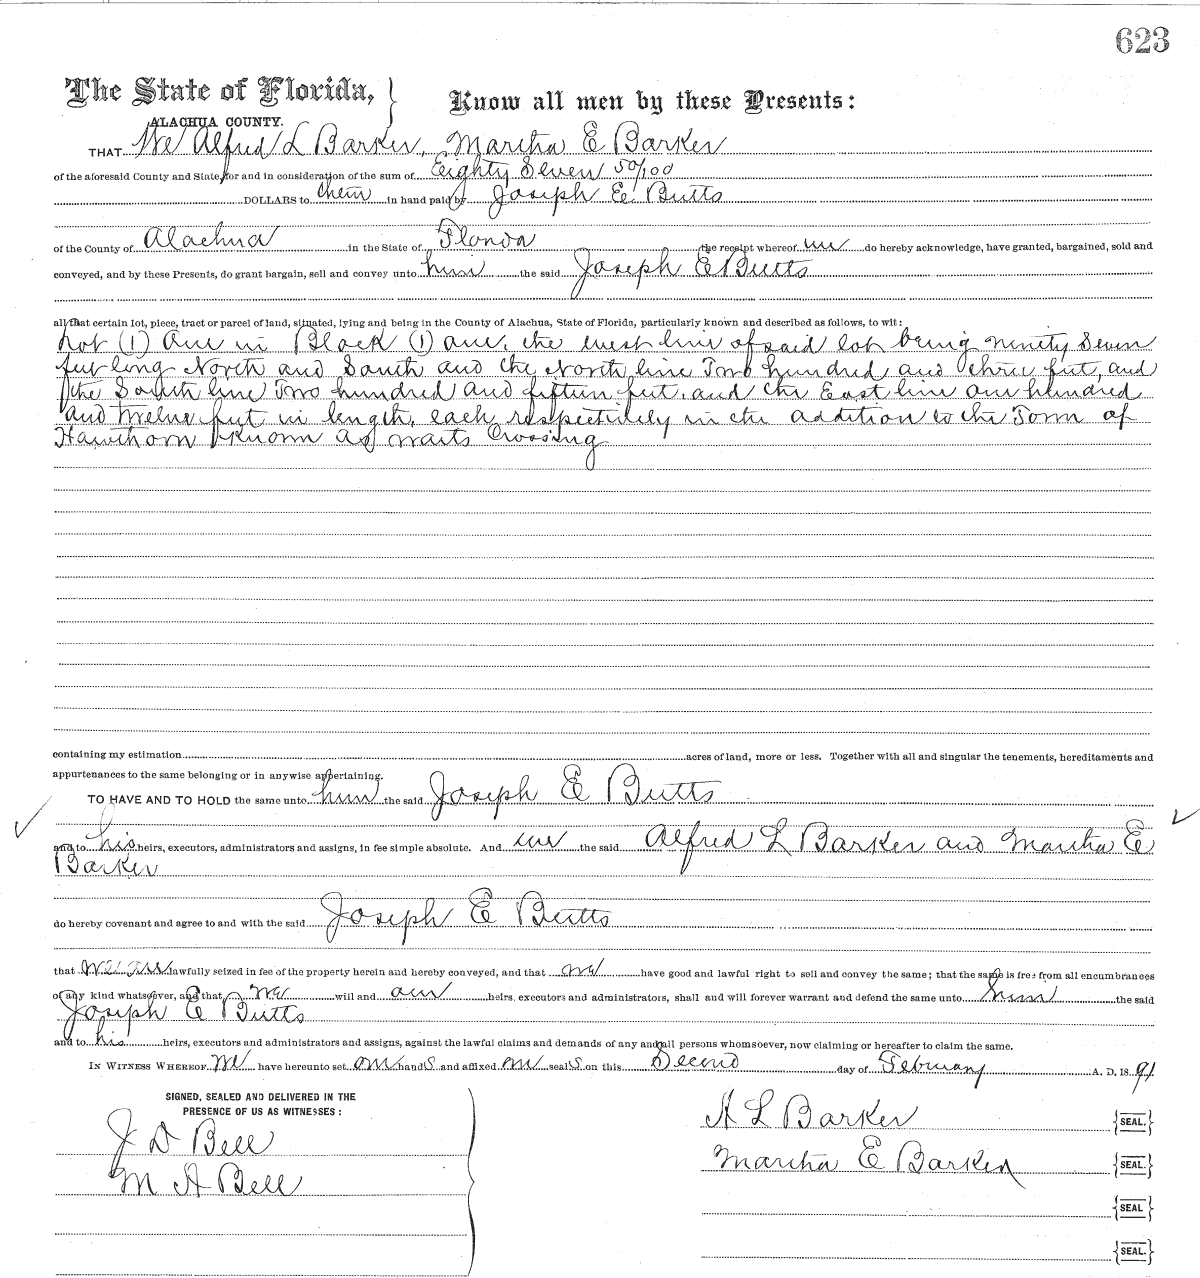 623
The State of Florida, } Know all men by these Presents:
ALACHUA COUNTY.
THAT We Alfred L Barker, Martha E Barker
of the aforesaid County and State, for and in consideration of the sum of Eighty Seven 50/100
DOLLARS to them in hand paid by Joseph E Butts
of the County of Alachua in the State of Florida the receipt whereof we do hereby acknowledge, have granted, bargained, sold and
conveyed, and by these Presents, do grant bargain, sell and convey unto him the said Joseph E Butts
all that certain lot, piece, tract or parcel of land, situated, lying and being in the County of Alachua, State of Florida, particularly known and described as follows, to wit:
Lot (1) One in Block (1) one, the west line of said lot being ninety Seven
feet long North and South and the North line Two hundred and three feet, and
the South line Two hundred and fifteen feet, and the East line one hundred
and twelve feet in length, each respectively in the addition to the Town of
Hawthorn Known as Waits Crossing
containing my estimation acres of land, more or less. Together with all and singular the tenements, hereditaments and
appurtenances to the same belonging or in anywise appertaining.
TO HAVE AND TO HOLD the same unto him the said Joseph E Butts
and to his heirs, executors, administrators and assigns, in fee simple absolute. And we the said Alfred L Barker and Martha E
Barker
do hereby covenant and agree to and with the said Joseph E Butts
that we are lawfully seized in fee of the property herein and hereby conveyed, and that we have good and lawful right to sell and convey the same; that the same is free from all encumbrances
of any kind whatsoever, and that we will and our heirs, executors and administrators, shall and will forever warrant and defend the same unto him the said
Joseph E Butts
and to his heirs, executors and administrators and assigns, against the lawful claims and demands of any and all persons whomsoever, now claiming or hereafter to claim the same.
IN WITNESS WHEREOF We have hereunto set our hands and affixed our seals on this Second day of February A. D. 1891
SIGNED, SEALED AND DELIVERED IN THE
PRESENCE OF US AS WITNESSES:
A L Barker {SEAL.}
J D Bell
Martha E Barker {SEAL.}
M A Bell
{SEAL}
{SEAL.}